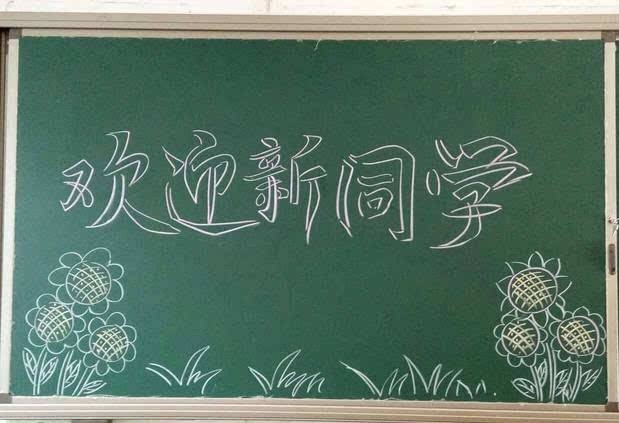 欢迎新同学